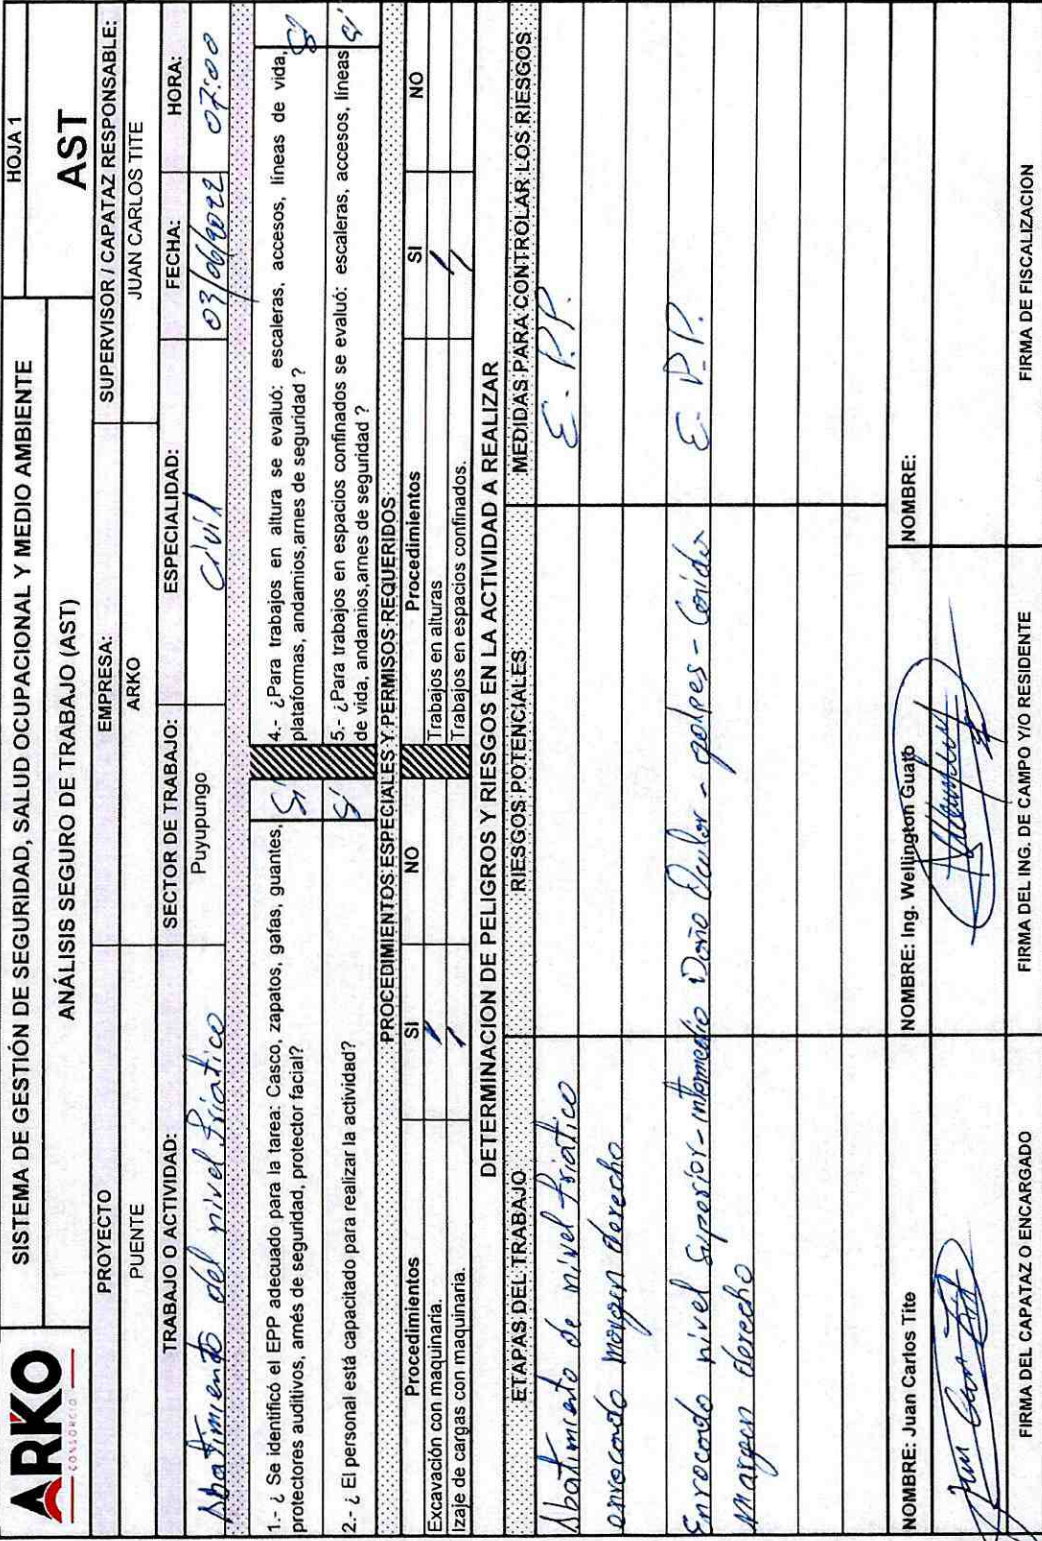 ARKO
CONSORCIO
SISTEMA DE GESTIÓN DE SEGURIDAD, SALUD OCUPACIONAL Y MEDIO AMBIENTE
HOJA 1
ANÁLISIS SEGURO DE TRABAJO (AST)
AST
PROYECTO
EMPRESA:
SUPERVISOR / CAPATAZ RESPONSABLE:
PUENTE
ARKO
JUAN CARLOS TITE
TRABAJO O ACTIVIDAD:
SECTOR DE TRABAJO:
ESPECIALIDAD:
FECHA:
HORA:
Abatimiento del nivel friatico
Puyupungo
Civil
03/06/2022
07:00
1.- ¿ Se identificó el EPP adecuado para la tarea: Casco, zapatos, gafas, guantes,
protectores auditivos, arnés de seguridad, protector facial?
Sí
4.- ¿Para trabajos en altura se evaluó: escaleras, accesos, líneas de vida,
plataformas, andamios,arnes de seguridad ?
Sí
2.- ¿ El personal está capacitado para realizar la actividad?
Sí
5.- ¿Para trabajos en espacios confinados se evaluó: escaleras, accesos, líneas
de vida, andamios,arnes de seguridad ?
Sí
PROCEDIMIENTOS ESPECIALES Y PERMISOS REQUERIDOS
Procedimientos
SI
NO
Procedimientos
SI
NO
Excavación con maquinaria.
Trabajos en alturas
Izaje de cargas con maquinaria.
Trabajos en espacios confinados.
DETERMINACION DE PELIGROS Y RIESGOS EN LA ACTIVIDAD A REALIZAR
ETAPAS DEL TRABAJO
RIESGOS POTENCIALES
MEDIDAS PARA CONTROLAR LOS RIESGOS
Abatimiento de nivel friatico
E.P.P.
enrocado margen derecho
Enrocado nivel Superior-intermedio
Daño Ocular - golpes - Caidas
E.P.P.
margen derecho
NOMBRE: Juan Carlos Tite
NOMBRE: Ing. Wellington Guato
NOMBRE:
FIRMA DEL CAPATAZ O ENCARGADO
FIRMA DEL ING. DE CAMPO Y/O RESIDENTE
FIRMA DE FISCALIZACION